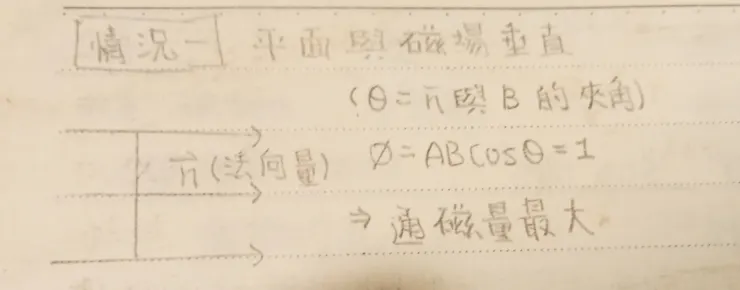 情況一 平面與磁場垂直
(θ=n與B的夾角)
n(法向量) Ø=ABcosθ=1
⇒通磁量最大